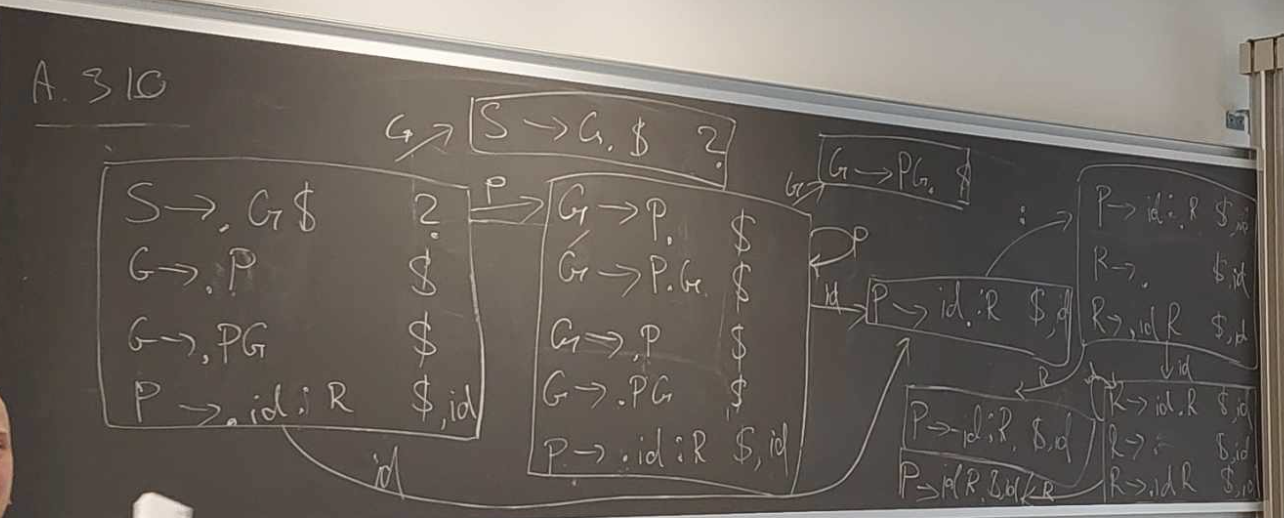 A. 3 10
G
S → G. $ ?
S → . G $ ?
G → . P $
G → . PG $
P → . id : R $, id
P
G → P. $
G → P. G $
G → . P $
G → . PG $
P → . id : R $, id
id
G
G → PG. $
P
id
P → id . : R $, id
:
P → id : . R $, id
R → . $, id
R → . id R $, id
R
id
P → id : R. $, id
R → id . R $, id
R → . $, id
R → . id R $, id
R
P → id R. $, id